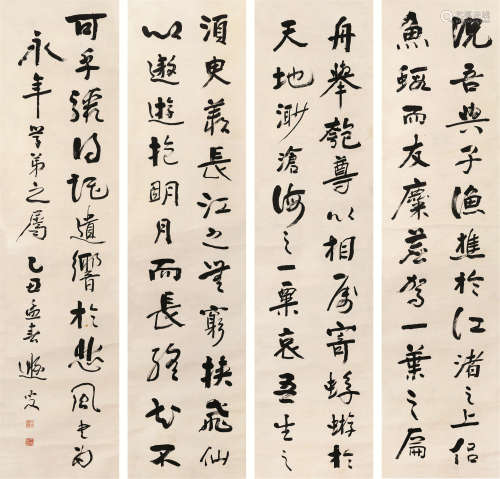 況吾與子漁樵於江渚之上侶
魚蝦而友麋鹿駕一葉之扁
舟舉匏尊以相屬寄蜉蝣於
天地渺滄海之一粟哀吾生之
須臾羨長江之無窮挾飛仙
以遨遊抱明月而長終知不
可乎驟得託遺響於悲風書為
永年学弟之屬 乙丑孟春